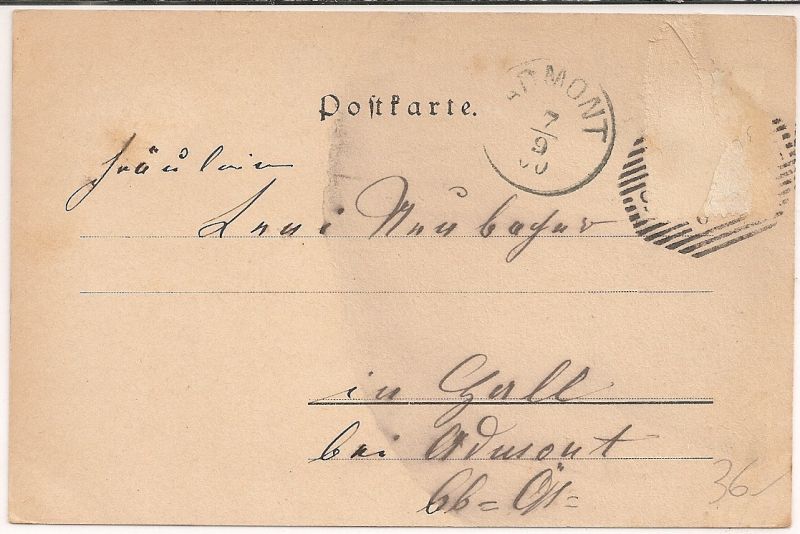 Postkarte.
ADMONT
7/9
Fräulein
Leni Neubacher
in Hall
bei Admont
36